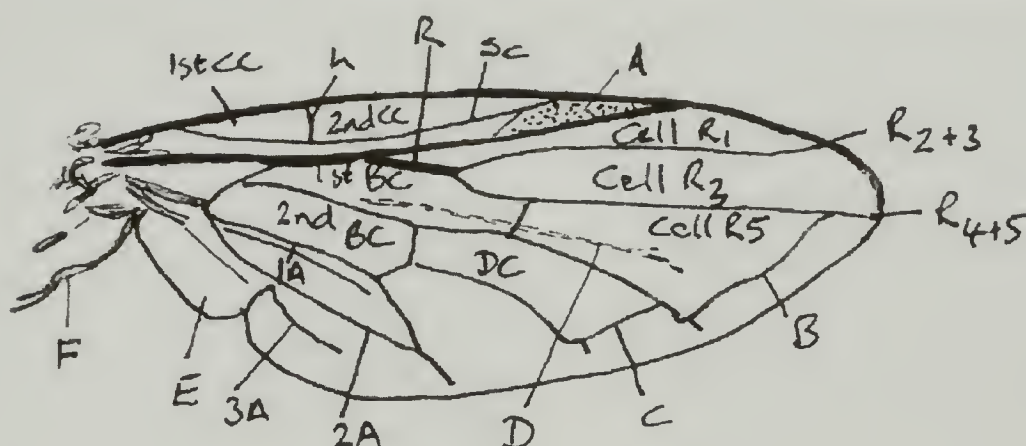 1st CC
h
R
Sc
A
2nd CC
Cell R1
R2+3
1st BC
Cell R3
2nd BC
Cell R5
R4+5
1A
DC
B
F
E
3A
2A
D
C